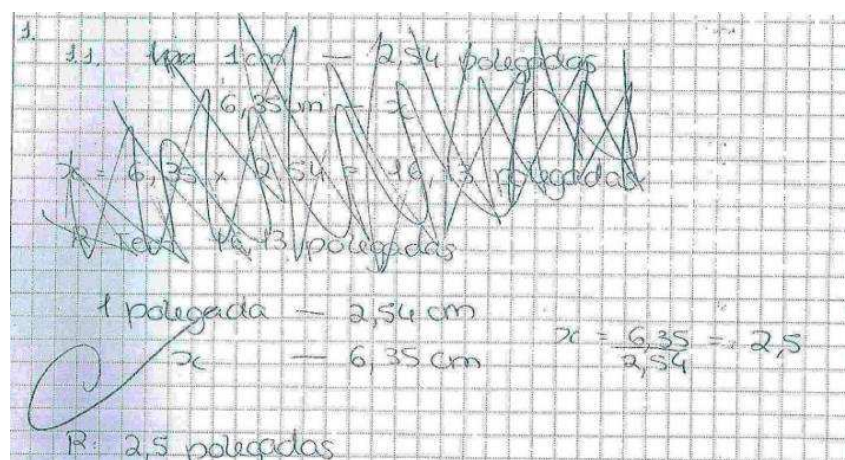 1.
1.1. 1 cm — 2,54 polegadas
6,35 cm — x
x = 6,35 x 2,54 = 16,13 polegadas
R: Tem 16,13 polegadas
1 polegada — 2,54 cm
x — 6,35 cm
x = 6,35 / 2,54 = 2,5
R: 2,5 polegadas